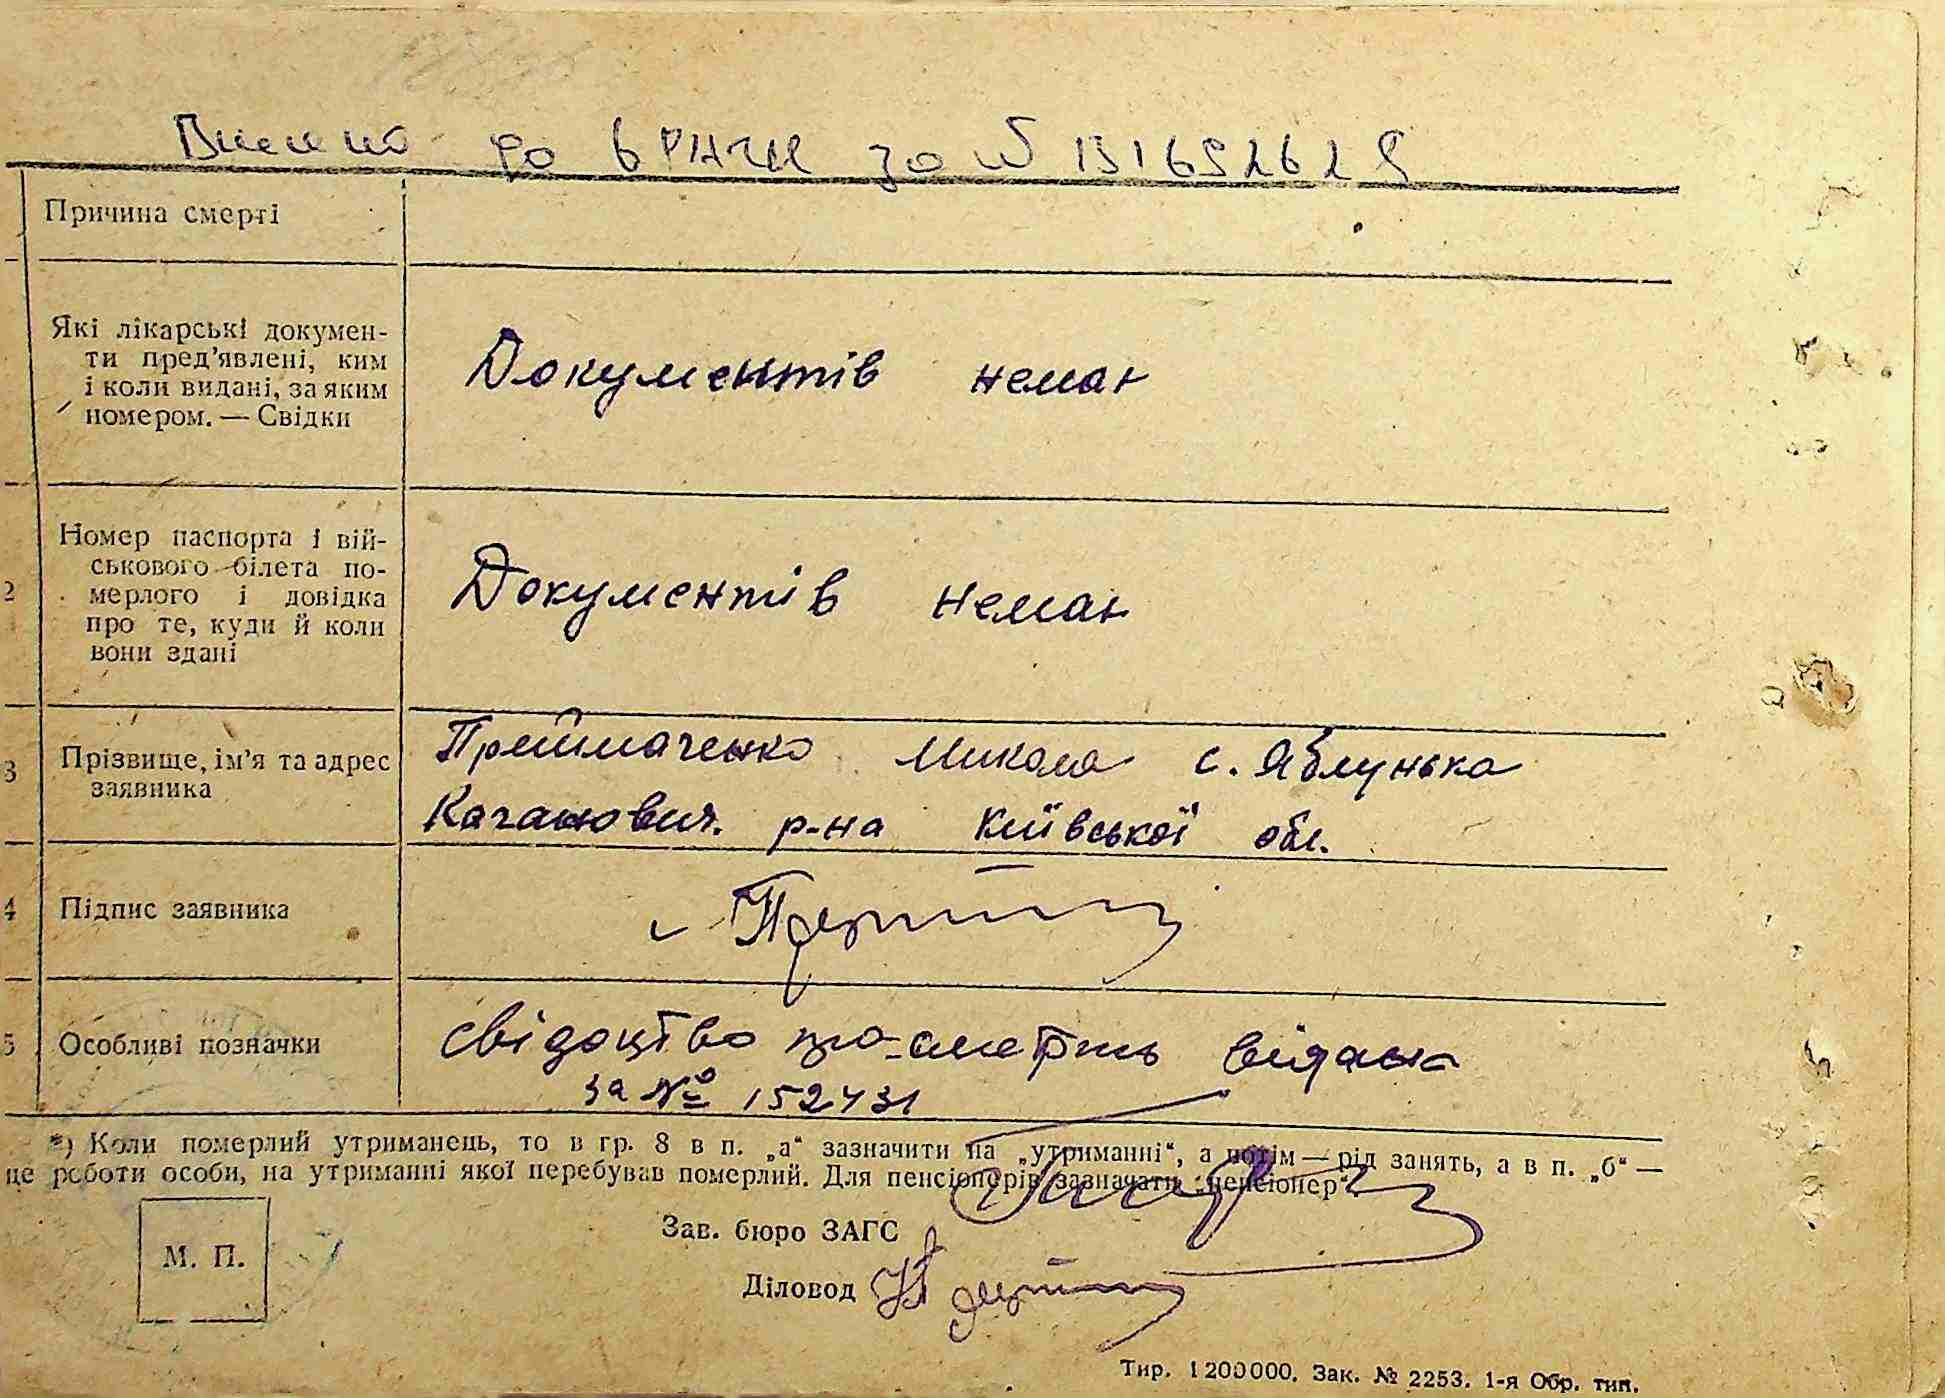 Внесено до ВРНЧК за №
Причина смерті
Які лікарські докумен-
ти пред'явлені, ким
і коли видані, за яким
номером. — Свідки
Документів немає
2
Номер паспорта і вій-
ськового білета по-
мерлого і довідка
про те, куди й коли
вони здані
Документів немає
3
Прізвище, ім'я та адрес
заявника
Приймаченко Микола с. Яблунька
Каганович. р-на Київської обл.
4
Підпис заявника
5
Особливі позначки
свідоцтво про смерть видано
за № 152431
*) Коли померлий утриманець, то в гр. 8 в п. „а“ зазначити на „утриманні“, а потім — рід занять, а в п. „б“ —
це роботи особи, на утриманні якої перебував померлий. Для пенсіонерів зазначати „пенсіонер“
М. П.
Зав. бюро ЗАГС
Діловод
Тир. 1200000. Зак. № 2253. 1-я Обр. тип.